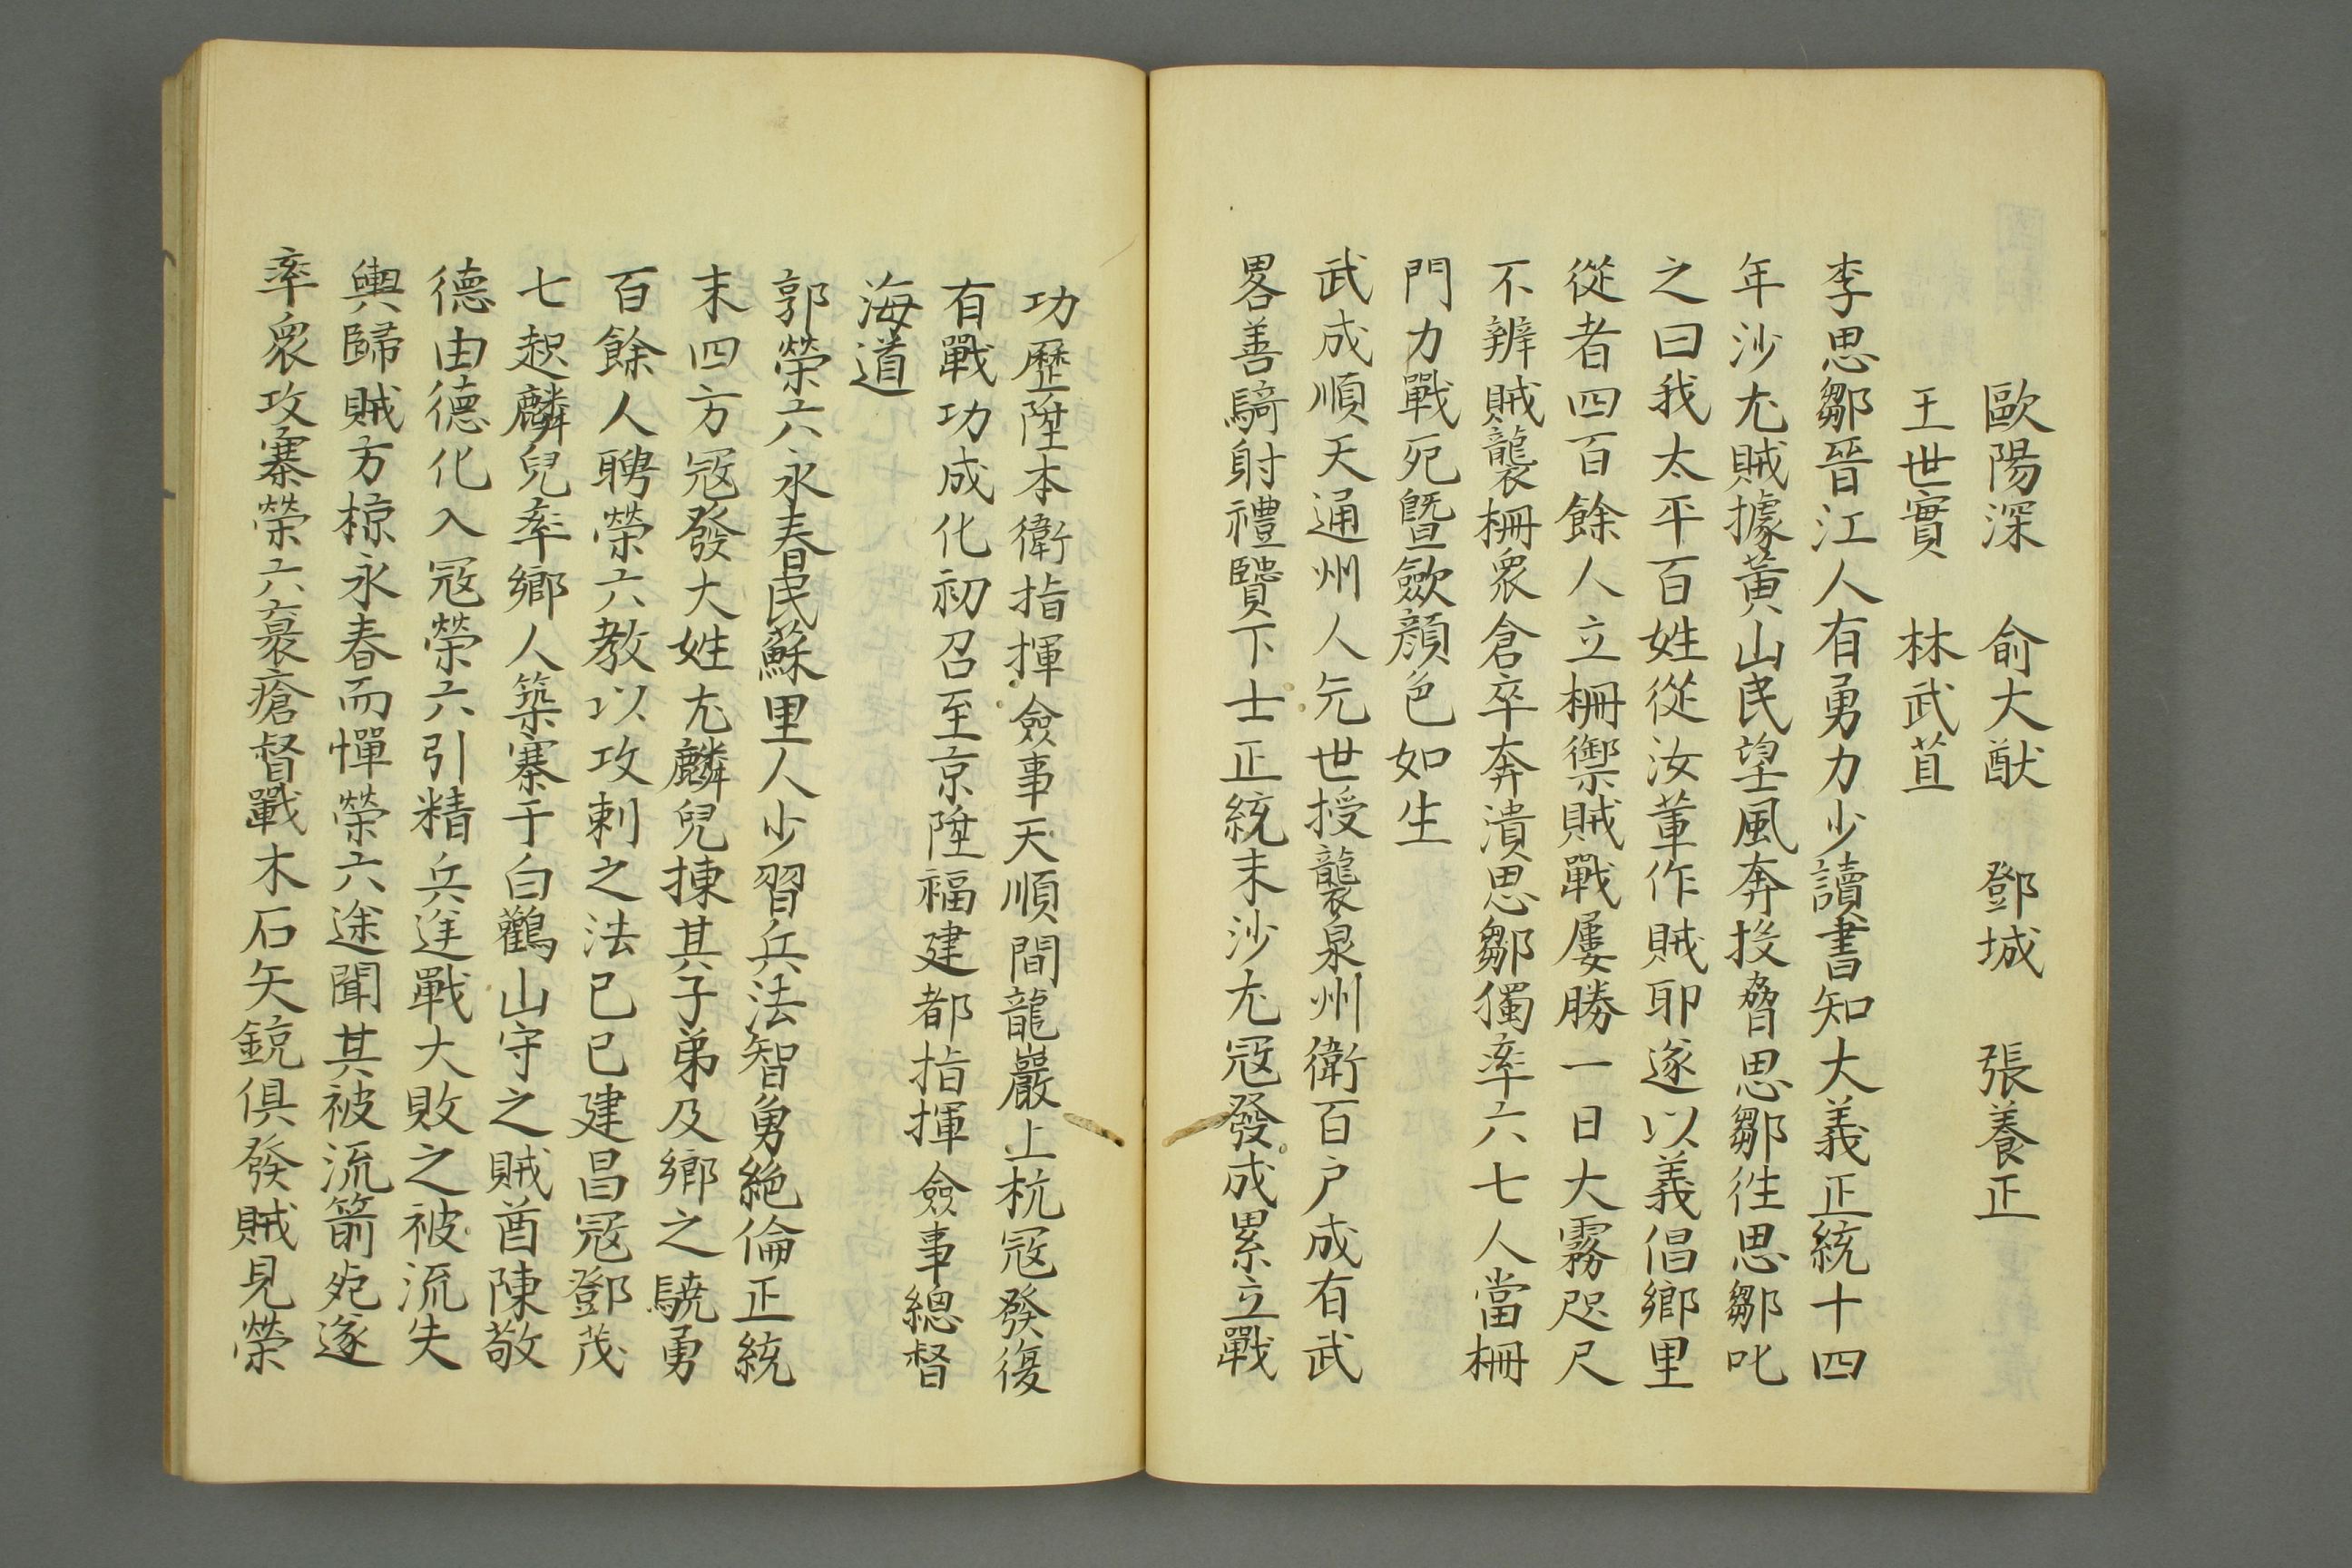 歐陽深　俞大猷　鄧城　張養正
王世實　林武苴
李思鄒晉江人有勇力少讀書知大義正統十四
年沙尤賊據黃山民望風奔投脅思鄒徃思鄒叱
之曰我太平百姓從汝軰作賊耶遂以義倡鄉里
從者四百餘人立柵禦賊戰屢勝一日大霧咫尺
不辨賊襲柵衆倉卒奔潰思鄒獨率六七人當柵
門力戰死曁歛顏色如生
武成順天通州人元世授襲泉州衛百户成有武
畧善騎射禮賢下士正統末沙尤冦發成累立戰
功歷陞本衛指揮僉事天順間龍巖上杭冦發復
有戰功成化初召至京陞福建都指揮僉事總督
海道
郭榮六永春民蘇里人少習兵法智勇絶倫正統
末四方冦發大姓尤麟兒揀其子弟及鄉之驍勇
百餘人聘榮六教以攻刺之法已已建昌冦鄧茂
七起麟兒率鄉人築寨于白鸖山守之賊酋陳敬
德由德化入冦榮六引精兵逆戰大敗之被流失
輿歸賊方掠永春而憚榮六途聞其被流箭死遂
率衆攻寨榮六裹瘡督戰木石矢銃俱發賊見榮